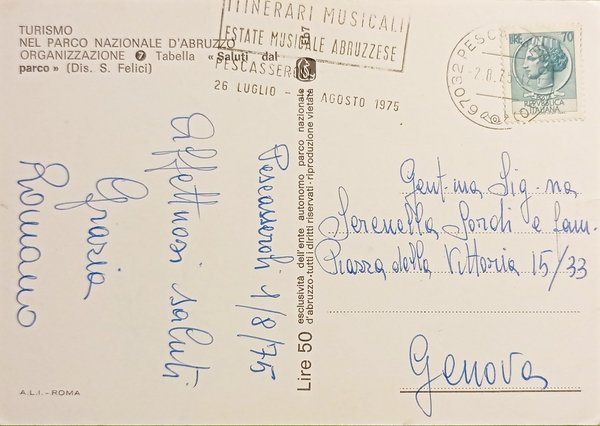 TURISMO
NEL PARCO NAZIONALE D'ABRUZZO
ORGANIZZAZIONE 7 Tabella «Saluti dal
parco» (Dis. S. Felici)
ITINERARI MUSICALI
ESTATE MUSICALE ABRUZZESE
PESCASSEROLI
26 LUGLIO - AGOSTO 1975
67032 PESCA
-2.8.75
LIRE 70
REPVBBLICA
ITALIANA
Pescasseroli 1/8/75
Affettuosi saluti
Grazia
Romano
Lire 50
esclusività dell'ente autonomo parco nazionale
d'abruzzo-tutti i diritti riservati-riproduzione vietata
Gent.ma Sig.na
Serenella Sordi e fam.
Piazza della Vittoria 15/33
Genova
A.L.I.-ROMA